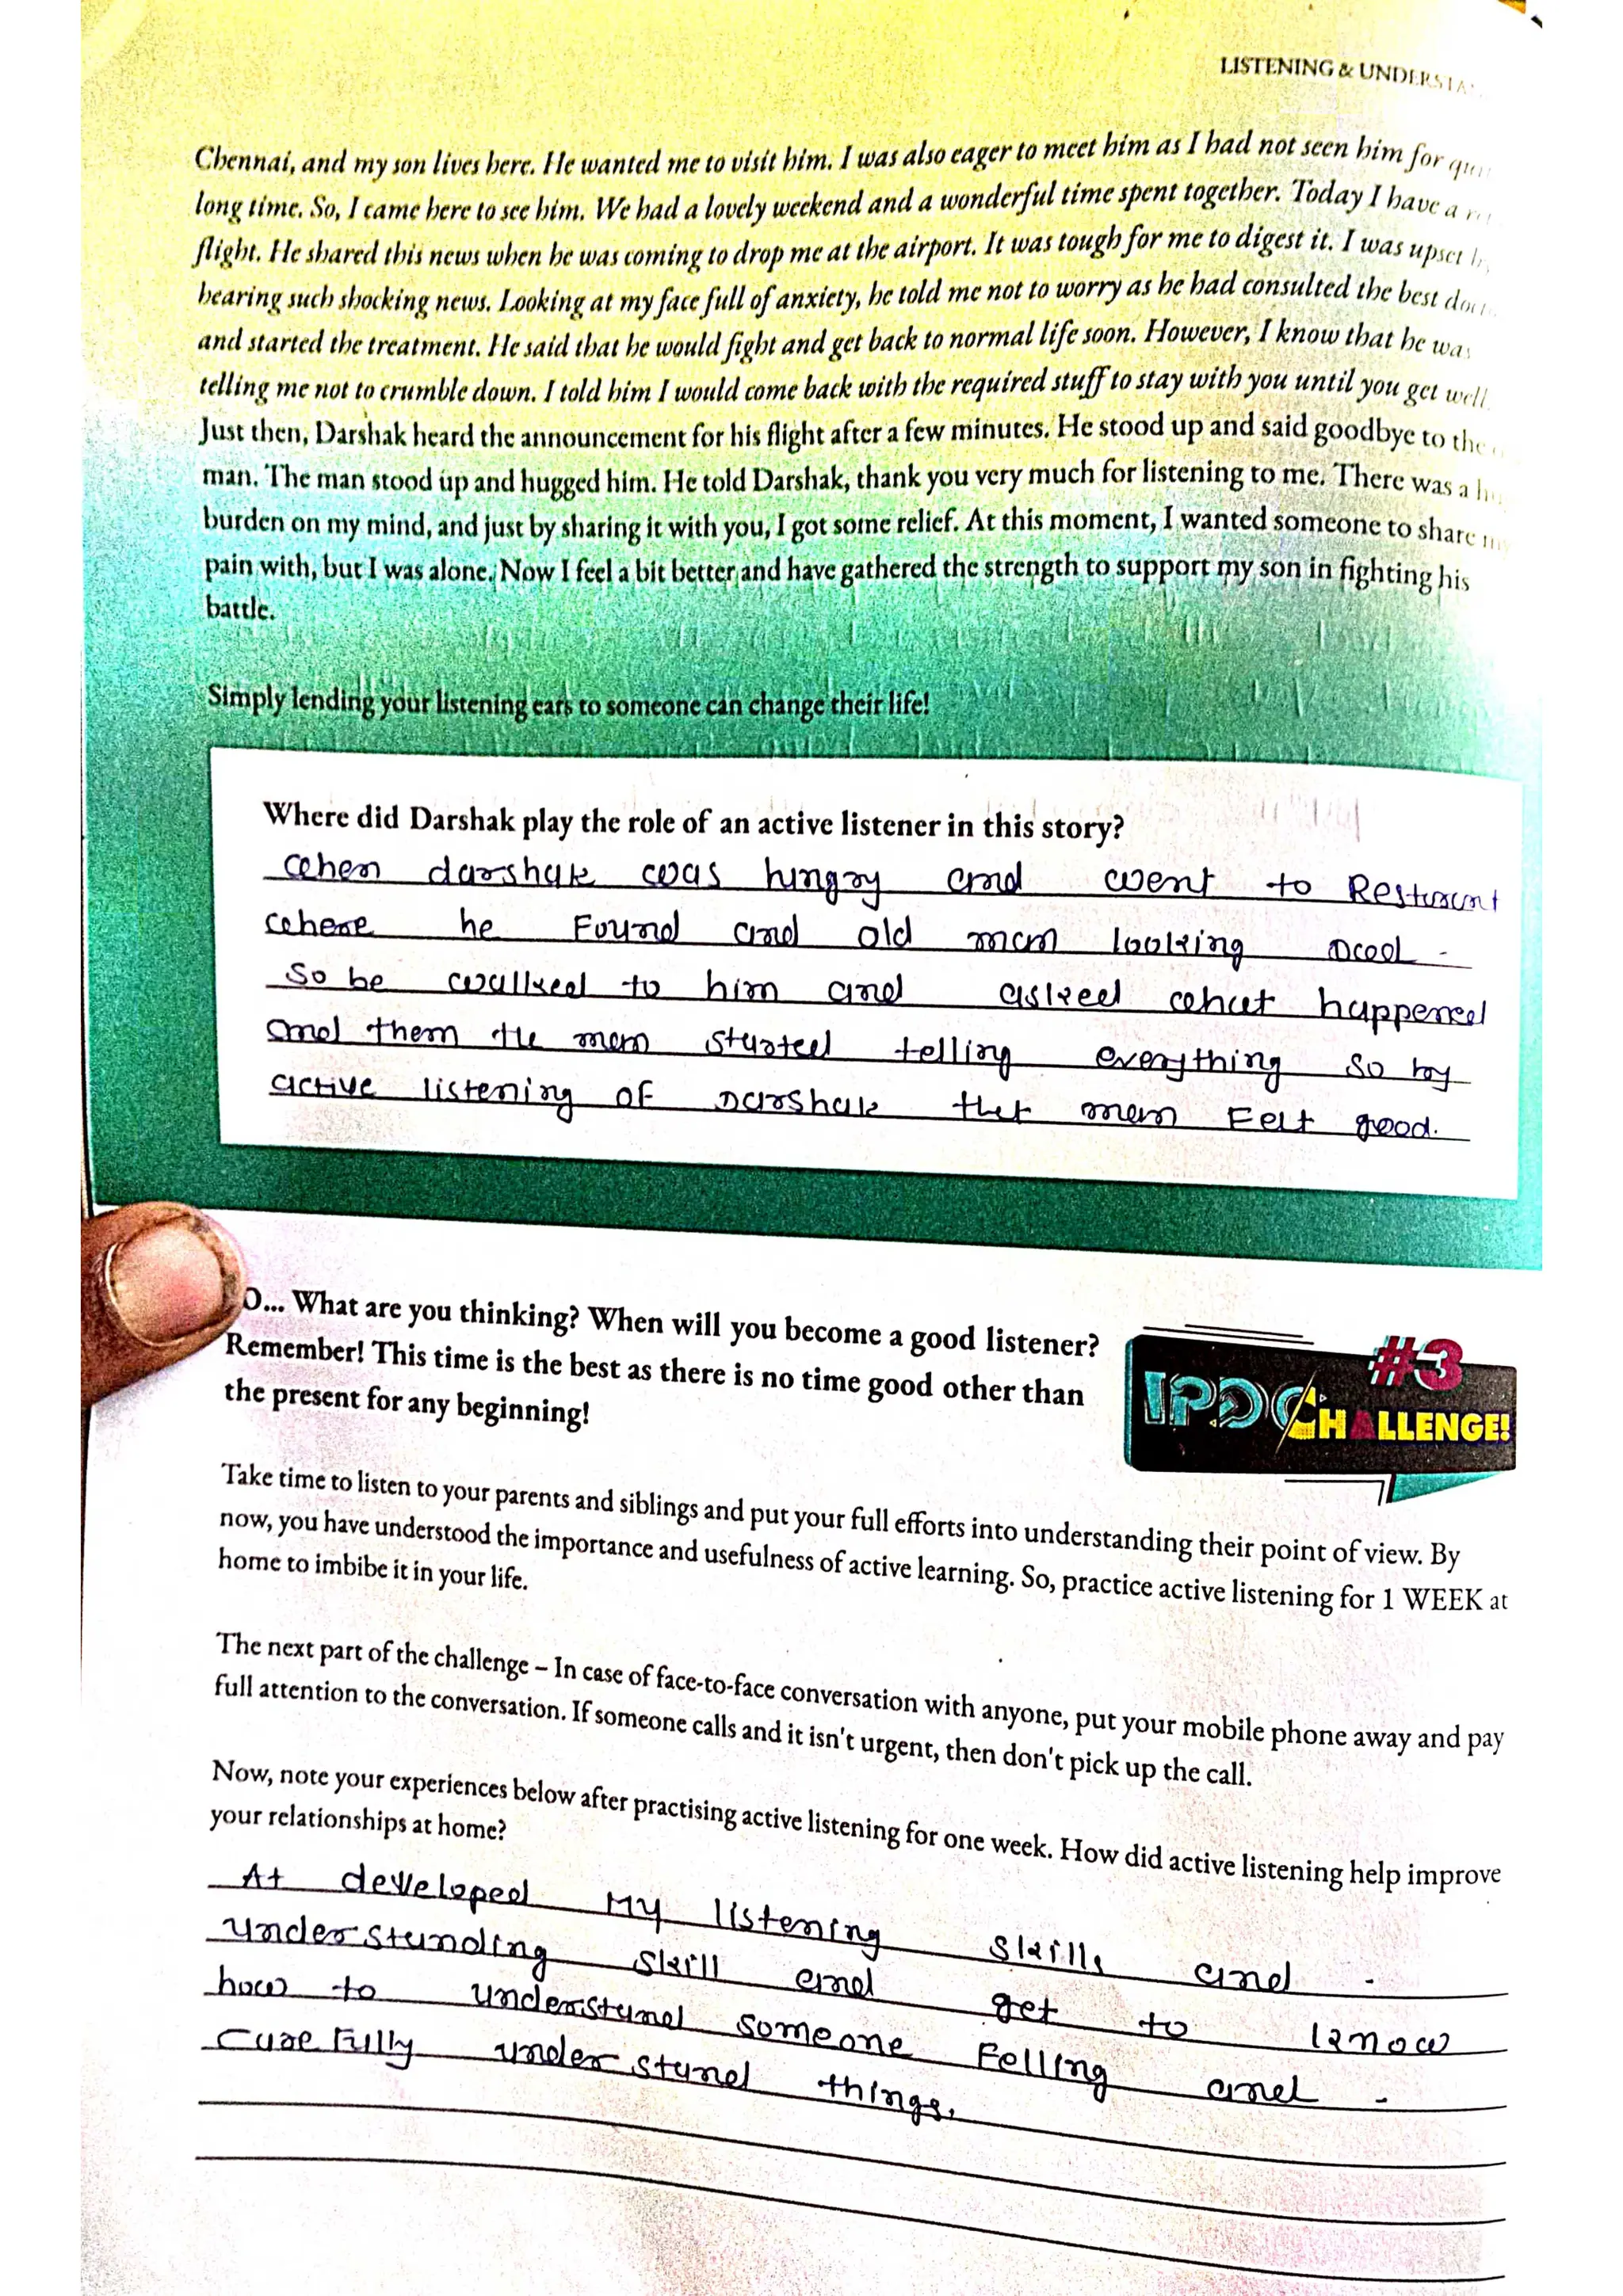 LISTENING & UNDERSTA
Chennai, and my son lives here. He wanted me to visit him. I was also eager to meet him as I had not seen him for
long time. So, I came here to see him. We had a lovely weekend and a wonderful time spent together. Today I have a
flight. He shared this news when he was coming to drop me at the airport. It was tough for me to digest it. I was upset
hearing such shocking news. Looking at my face full of anxiety, he told me not to worry as he had consulted the best
and started the treatment. He said that he would fight and get back to normal life soon. However, I know that he was
telling me not to crumble down. I told him I would come back with the required stuff to stay with you until you get well.
Just then, Darshak heard the announcement for his flight after a few minutes. He stood up and said goodbye to the
man. The man stood up and hugged him. He told Darshak, thank you very much for listening to me. There was a
burden on my mind, and just by sharing it with you, I got some relief. At this moment, I wanted someone to share
pain with, but I was alone. Now I feel a bit better and have gathered the strength to support my son in fighting his
battle.
Simply lending your listening ears to someone can change their life!
Where did Darshak play the role of an active listener in this story?
when darshak was hungry and went to
where he Found and old man looking
so he walked to him and asked what happened
and them the man started telling everything so by
active listening of Darshak that man Felt good.
O... What are you thinking? When will you become a good listener?
Remember! This time is the best as there is no time good other than
the present for any beginning!
#3
IPDC CHALLENGE!
Take time to listen to your parents and siblings and put your full efforts into understanding their point of view. By
now, you have understood the importance and usefulness of active learning. So, practice active listening for 1 WEEK at
home to imbibe it in your life.
The next part of the challenge – In case of face-to-face conversation with anyone, put your mobile phone away and pay
full attention to the conversation. If someone calls and it isn't urgent, then don't pick up the call.
Now, note your experiences below after practising active listening for one week. How did active listening help improve
your relationships at home?
At developed My listening skills and
understanding skill and get to know
how to understand someone Felling and
careFully understand things.